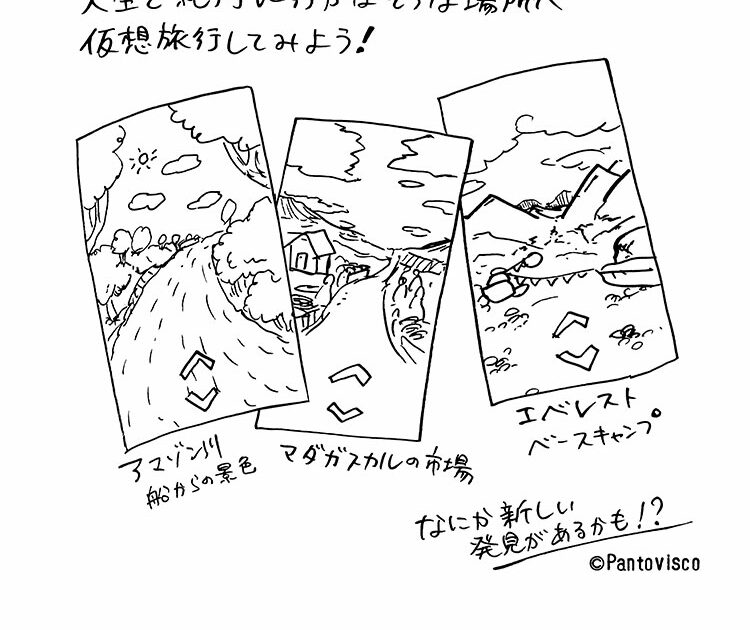 仮想旅行してみよう!
アマゾン川
船からの景色
マダガスカルの市場
エベレスト
ベースキャンプ
なにか新しい
発見があるかも!?
©Pantovisco